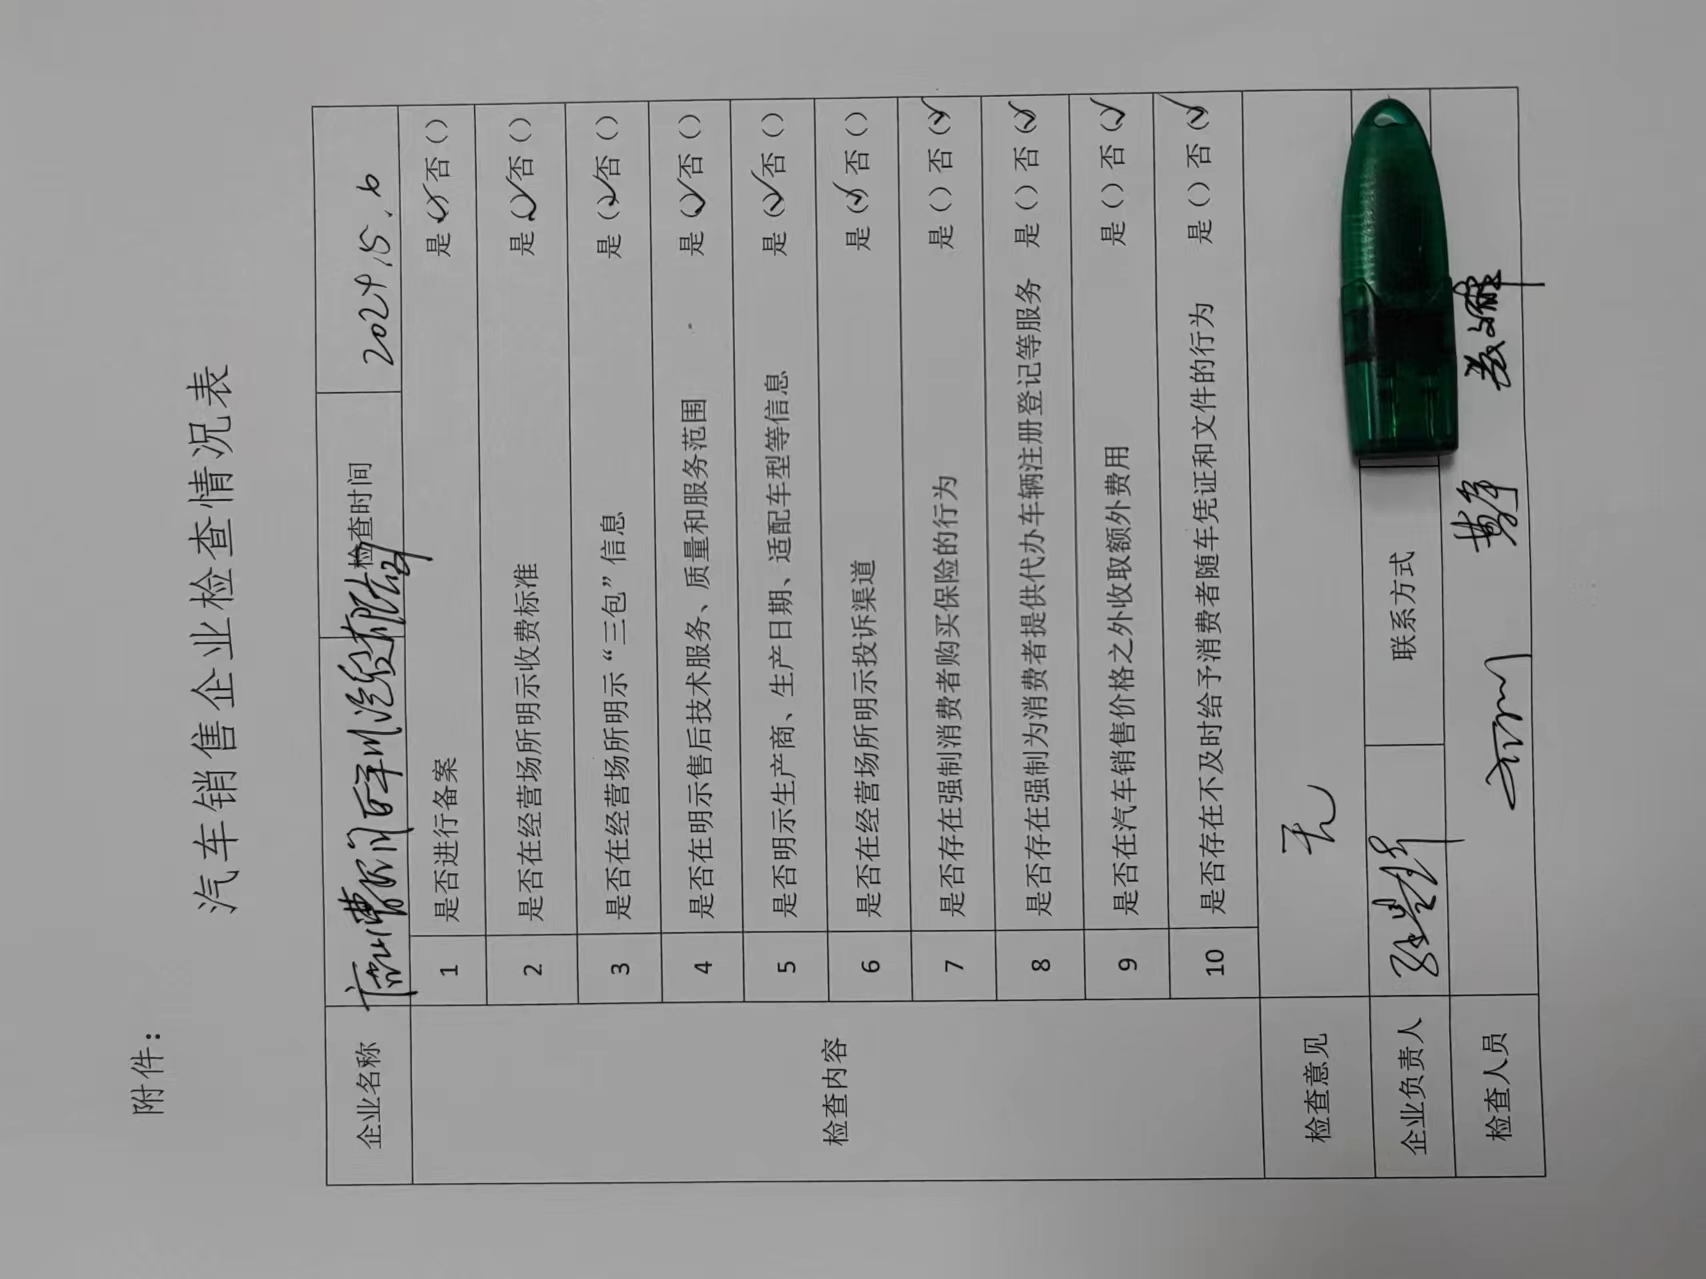 附件：
汽车销售企业检查情况表
企业名称 检查时间 2024.5.6
检查内容
1 是否进行备案 是(✓)否()
2 是否在经营场所明示收费标准 是(✓)否()
3 是否在经营场所明示“三包”信息 是(✓)否()
4 是否在明示售后技术服务、质量和服务范围 是(✓)否()
5 是否明示生产商、生产日期、适配车型等信息 是(✓)否()
6 是否在经营场所明示投诉渠道 是(✓)否()
7 是否存在强制消费者购买保险的行为 是()否(✓)
8 是否存在强制为消费者提供代办车辆注册登记等服务 是()否(✓)
9 是否在汽车销售价格之外收取额外费用 是()否(✓)
10 是否存在不及时给予消费者随车凭证和文件的行为 是()否(✓)
检查意见 无
企业负责人 联系方式
检查人员